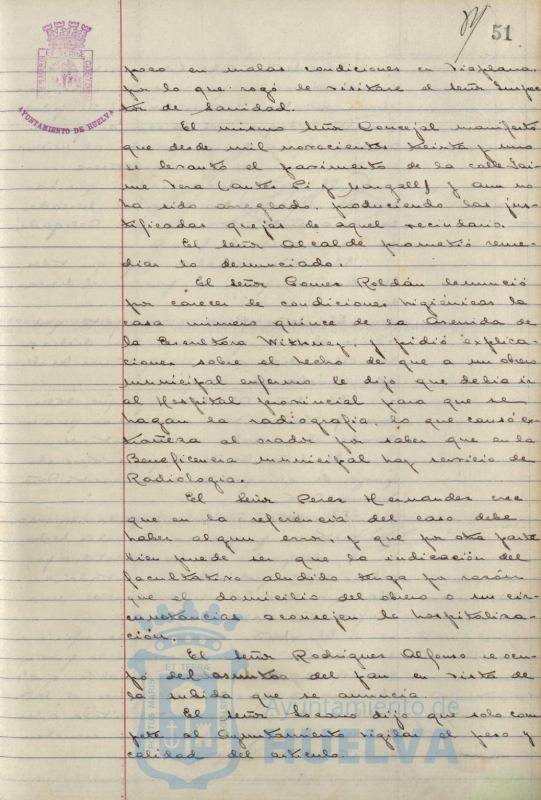 51
AYUNTAMIENTO DE HUELVA
poso en malas condiciones en
por lo que rogó le visitare el señor Inspec
tor de Sanidad.
El mismo señor Concejal manifestó
que desde mil novecientos treinta y uno
se levantó el pavimento de la calle Jai
me Vera (antes Pi y Margall) y aun no
ha sido arreglado, produciendo las jus-
tificadas quejas de aquel vecindario.
El señor Alcalde prometió reme-
diar lo denunciado.
El señor Gomez Roldán denunció
por carecer de condiciones higiénicas la
casa número quince de la Avenida de
la Escultora Withney, y pidió explica-
ciones sobre el hecho de que a un obrero
municipal enfermo le dijo que debia ir
al Hospital provincial para que se
hagan la radiografía, lo que causó ex-
trañeza al orador por saber que en la
Beneficencia municipal hay servicio de
Radiología.
El señor Perez Hernandez cree
que en la referencia del caso debe
haber algun error, y que por otra parte
bien puede ser que la indicación del
facultativo aludido tenga por razón
que el domicilio del obrero o sus cir-
cunstancias aconsejen la hospitaliza-
ción.
El señor Rodriguez Alfonso se ocu-
pó del asunto del pan en vista de
la subida que se anuncia.
El señor Lozano dijo que solo com
pete al Ayuntamiento vigilar el peso y
calidad del artículo.
Ayuntamiento de
HUELVA